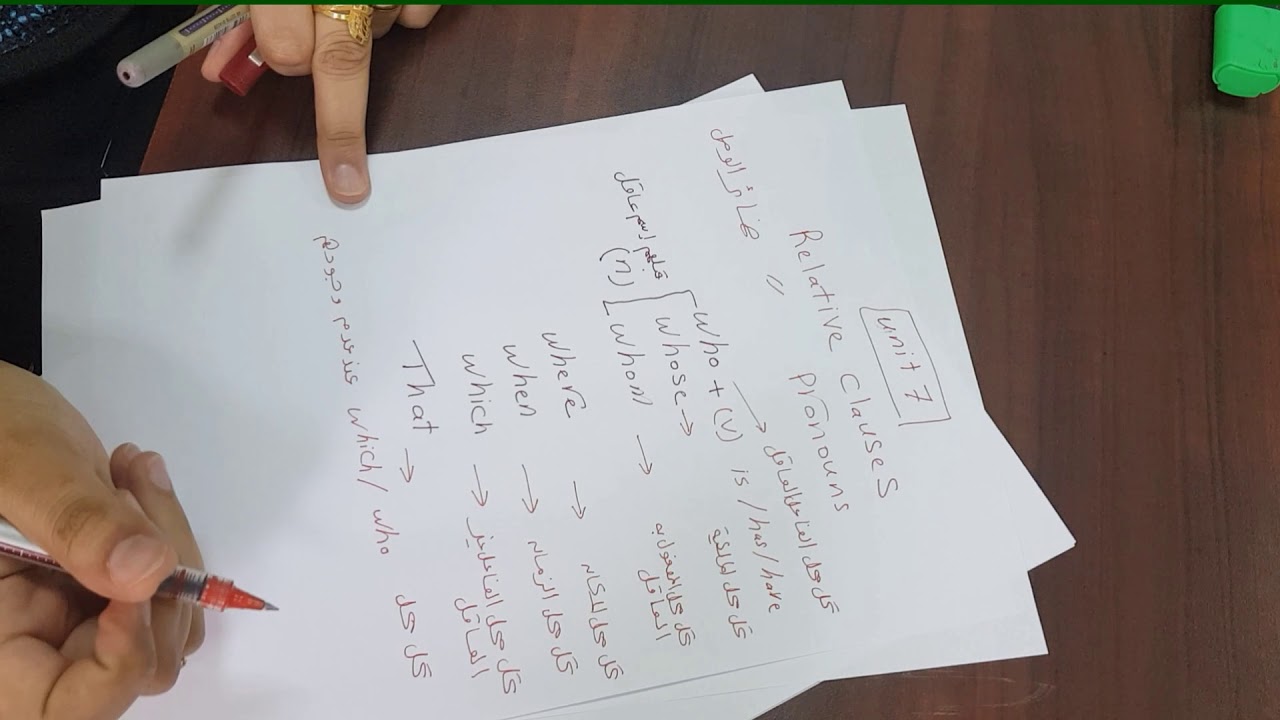 unit 7
Relative Clauses
ضمائر الوصل " Pronouns
who + (v) is / has / have
تحل محل الفاعل العاقل
قبلهم إسم عاقل (n)
whose → تحل محل الملكية
whom → تحل محل المفعول به العاقل
where → تحل محل المكان
when → تحل محل الزمان
which → تحل محل الفاعل غير العاقل
That → تحل محل
which / who عند عدم وجودهم